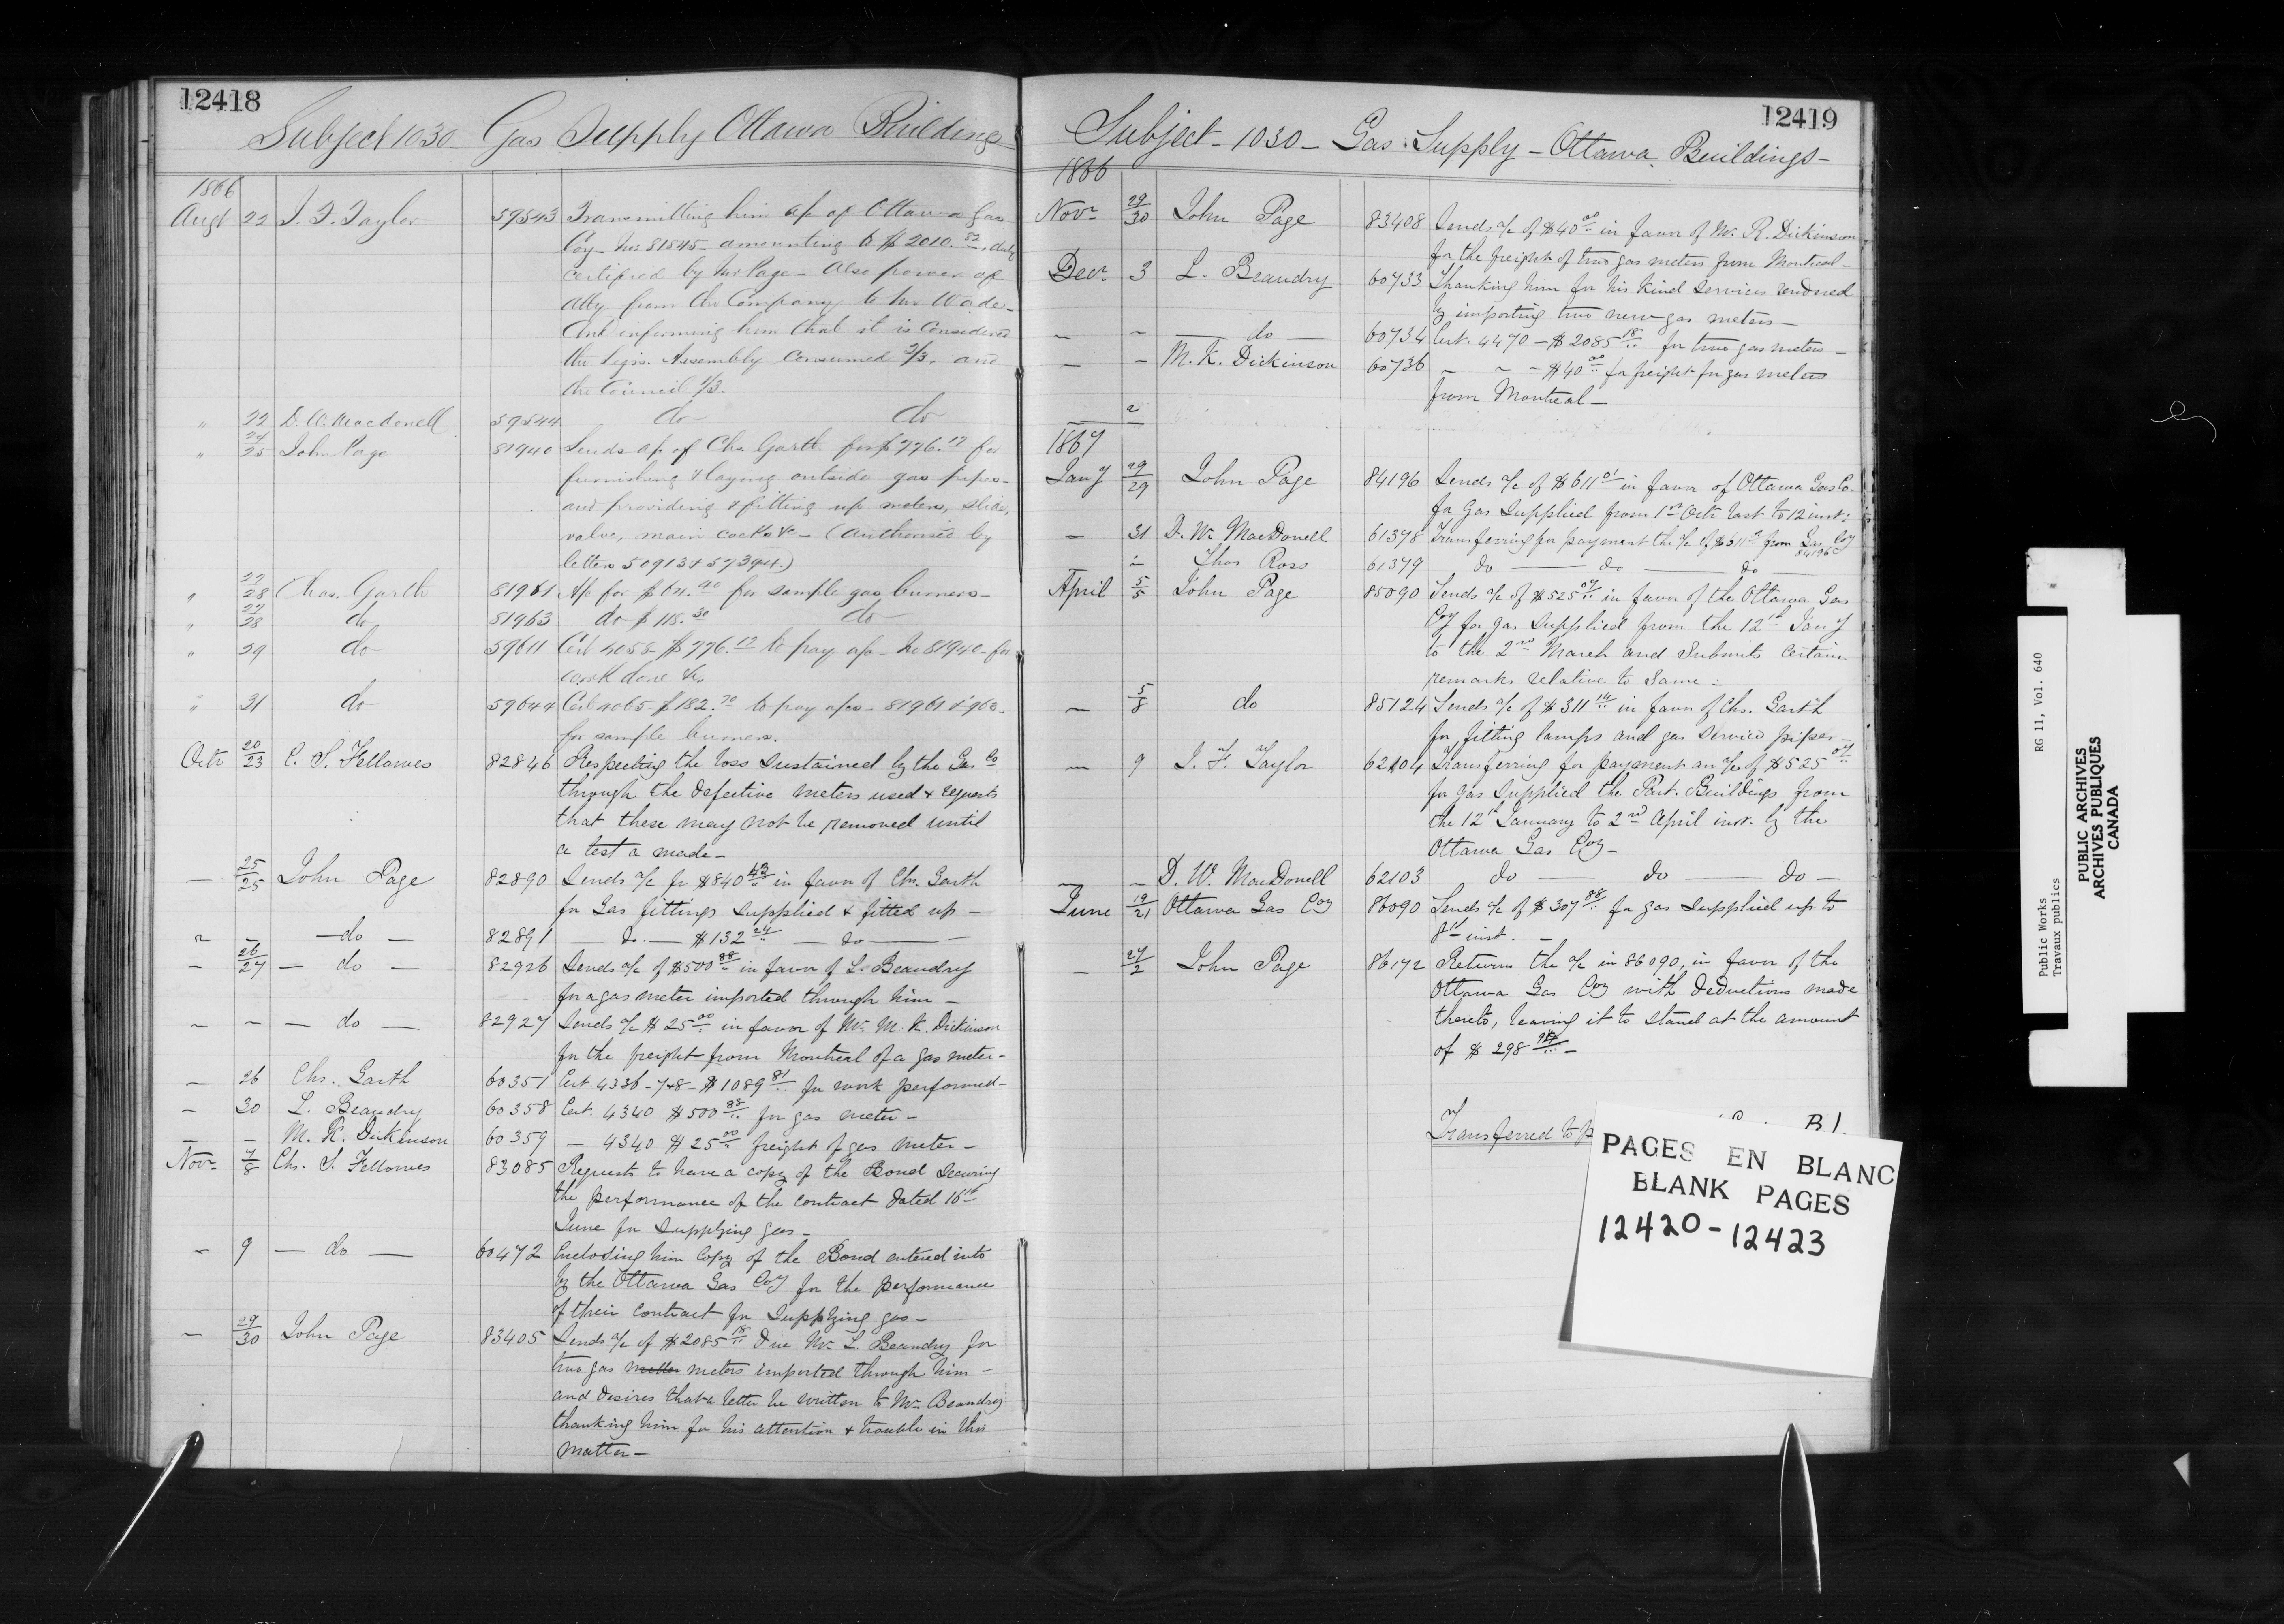 12418
Subject 1030 Gas Supply Ottawa Buildings
1866
Augt 22 J. F. Taylor 59543 Transmitting him a/c of Ottawa Gas
Coy - No 81845 - amounting to $2010.83, duly
certified by Mr Page - Also power of
Atty from the Company to Mr Wade -
And informing him that it is considered
the Legis. Assembly consumed 2/3. and
the Council 1/3.
" 22 D. W. Macdonell 59544 do do
" 24/25 John Page 81940 Sends a/c of Chs Garth for $776.12 for
furnishing & laying outside gas pipes -
and providing & fitting up meters, slide,
valve, main cocks &c - (authorised by
letters 50913 & 57394.)
" 27/28 Chas. Garth 81961 A/c for $64.40 for sample gas burners -
" 27/28 do 81963 do $118.30 do
" 29 do 59611 Cert 4058 $776.12 to pay a/c - No 81940 - for
work done &c
" 31 do 59644 Cert 4065 - $182.70 to pay a/cs - 81961 & 963 -
for sample burners.
Octr 20/23 C. S. Fellowes 82846 Respecting the loss sustained by the Gas Co
through the defective meters used & requests
that these may not be removed until
a test a made -
— 25/25 John Page 82890 Sends a/c for $840.43 in favor of Chs. Garth
for Gas fittings supplied & fitted up -
" - — do — 82891 — do. — $132.24 — do —
- 26/27 — do — 82926 Sends a/c of $500.88 in favor of L. Beaudry
for a gas meter imported through him -
- - — do — 82927 Sends a/c $25.00 in favor of Mr. M. K. Dickinson
for the freight from Montreal of a gas meter -
— 26 Chs. Garth 60351 Cert 4336-7&8 - $1089.81 for work performed -
- 30 L. Beaudry 60358 Cert. 4340 $500.88 for gas meter -
- - M. K. Dickinson 60359 — 4340 $25.00 freight of gas meter -
Novr 7/8 Chs. S. Fellowes 83085 Requests to have a copy of the Bond securing
the performance of the contract dated 16th
June for supplying gas -
- 9 — do — 60472 Enclosing him copy of the Bond entered into
by the Ottawa Gas Coy for the performance
of their contract for supplying gas -
- 29/30 John Page 83405 Sends a/c of $2085.18 due Mr. L. Beaudry for
two gas meters imported through him -
and desires that a letter be written to Mr Beaudry
thanking him for his attention & trouble in this
matter -
12419
Subject - 1030 - Gas Supply - Ottawa Buildings -
1866
Novr 29/30 John Page 83408 Sends a/c of $40.00 in favor of Mr. R. Dickinson
for the freight of two gas meters from Montreal -
Decr 3 L. Beaudry 60733 Thanking him for his kind services rendered
by importing two new gas meters -
- - — do — 60734 Cert. 4470 - $2085.18 for two gas meters -
- - M. K. Dickinson 60736 - " - $40.00 for freight for gas meters
from Montreal -
1867
Jany 29/29 John Page 84196 Sends a/c of $611.01 in favor of Ottawa Gas Co.
for Gas supplied from 1st Octr last to 12 inst:
- 31 D. W. MacDonell 61378 Transferring for payment the a/c of $611.01 from Gas Coy
84196
" Thos Ross 61379 do — do — do —
April 5/5 John Page 85090 Sends a/c of $525.07 in favor of the Ottawa Gas
Coy for gas supplied from the 12th Jany
to the 2nd March and submits certain
remarks relative to same :
- 5/8 do 85124 Sends a/c of $311.14 in favor of Chs. Garth
for fitting lamps and gas service pipes -
- 9 J. F. Taylor 62104 Transferring for payment an a/c of $525.07
for gas supplied the Parl. Buildings from
the 12th January to 2nd April inst. by the
Ottawa Gas Coy -
- - D. W. MacDonell 62103 do — do — do -
June 19/21 Ottawa Gas Coy 86090 Sends a/c of $307.88 for gas supplied up to
8th inst. -
- 27/2 John Page 86172 Returns the a/c in 86090, in favor of the
Ottawa Gas Coy with deductions made
thereto, leaving it to stand at the amount
of $298.94 -
Transferred to p
PAGES EN BLANC
BLANK PAGES
12420-12423
Public Works RG 11, Vol. 640
Travaux publics
PUBLIC ARCHIVES
ARCHIVES PUBLIQUES
CANADA